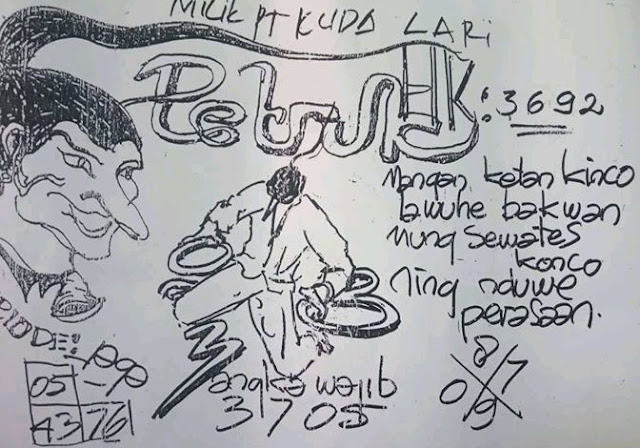 MILIK PT KUDA LARI
: 3692
Mangan ketan kinco
lawuhe bakwan
nung sewates
konco
ning nduwe
perasaan.
8
0 7
9
05
43 76
angka wajib
3 7 0 5